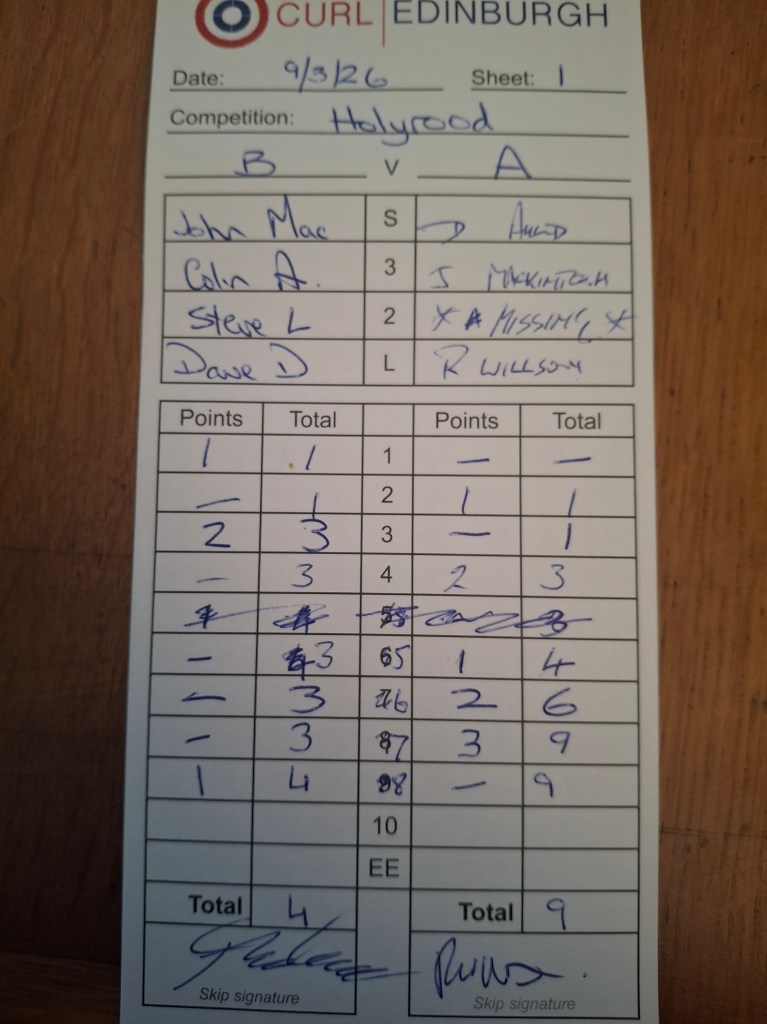 CURL | EDINBURGH
Date: 9/3/26 Sheet: 1
Competition: Holyrood
B v A
John Mac S
Colin A. 3 J
Steve L 2 * A MISSING *
Dave D L R WILLSON
Points Total Points Total
1 1 1 — —
— 1 2 1 1
2 3 3 — 1
— 3 4 2 3
— 3 5 1 4
— 3 6 2 6
— 3 7 3 9
1 4 8 — 9
10
EE
Total 4 Total 9
Skip signature Skip signature